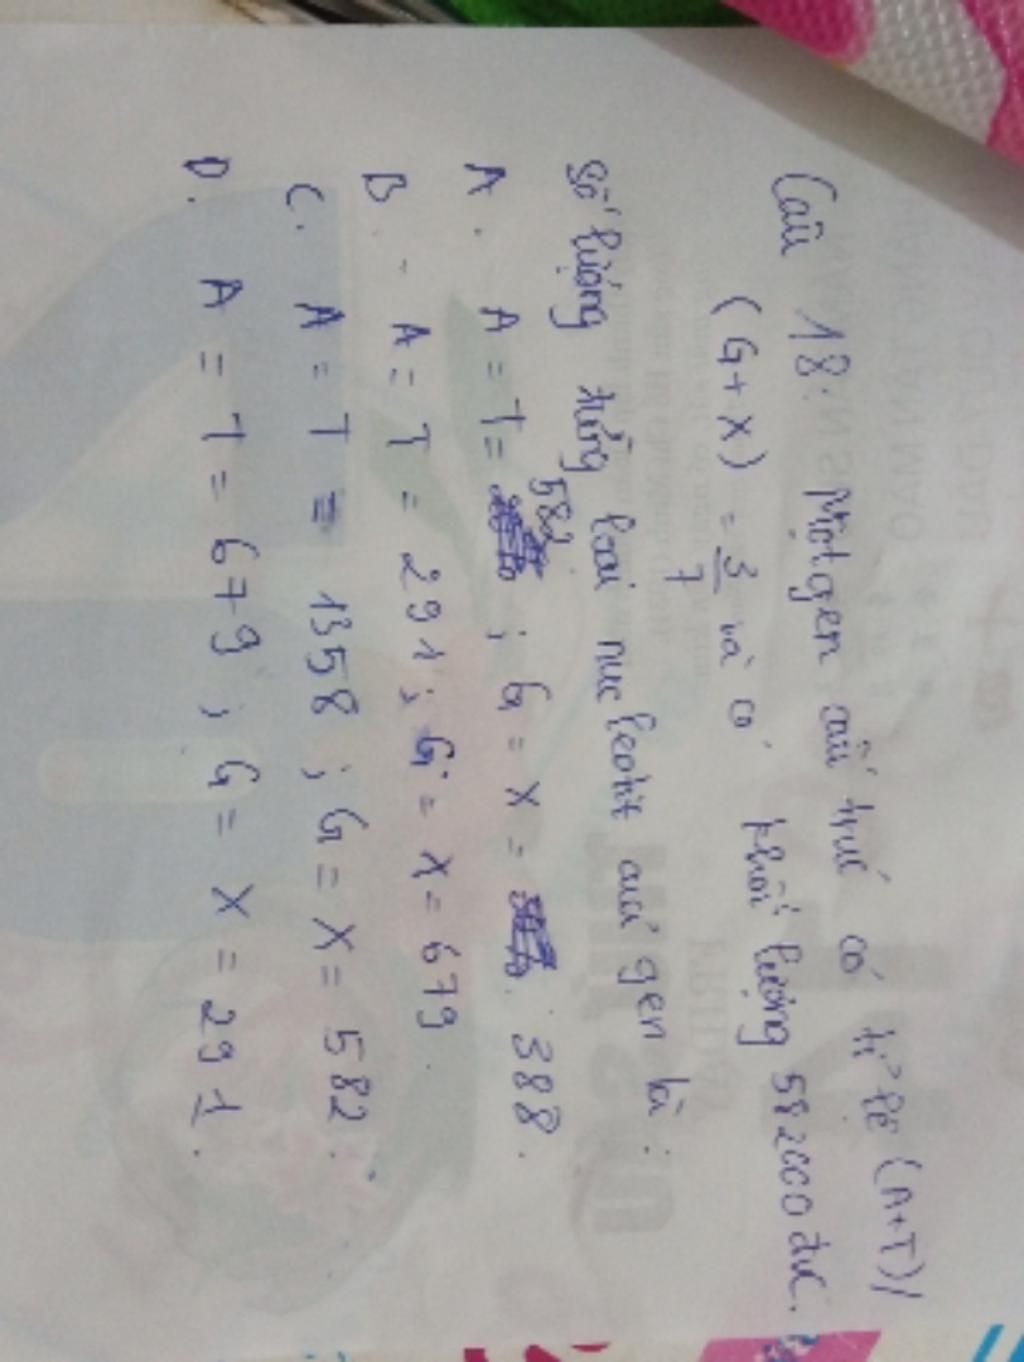 Câu 18: Một gen cấu trúc có tỉ lệ (A+T)/
(G+X) = 3/7 và có khối lượng 582000 đvC.
Số lượng từng loại nucleotit của gen là:
A. A = T = 582 ; G = X = 388.
B. A = T = 291 ; G = X = 679.
C. A = T = 1358 ; G = X = 582.
D. A = T = 679 ; G = X = 291.